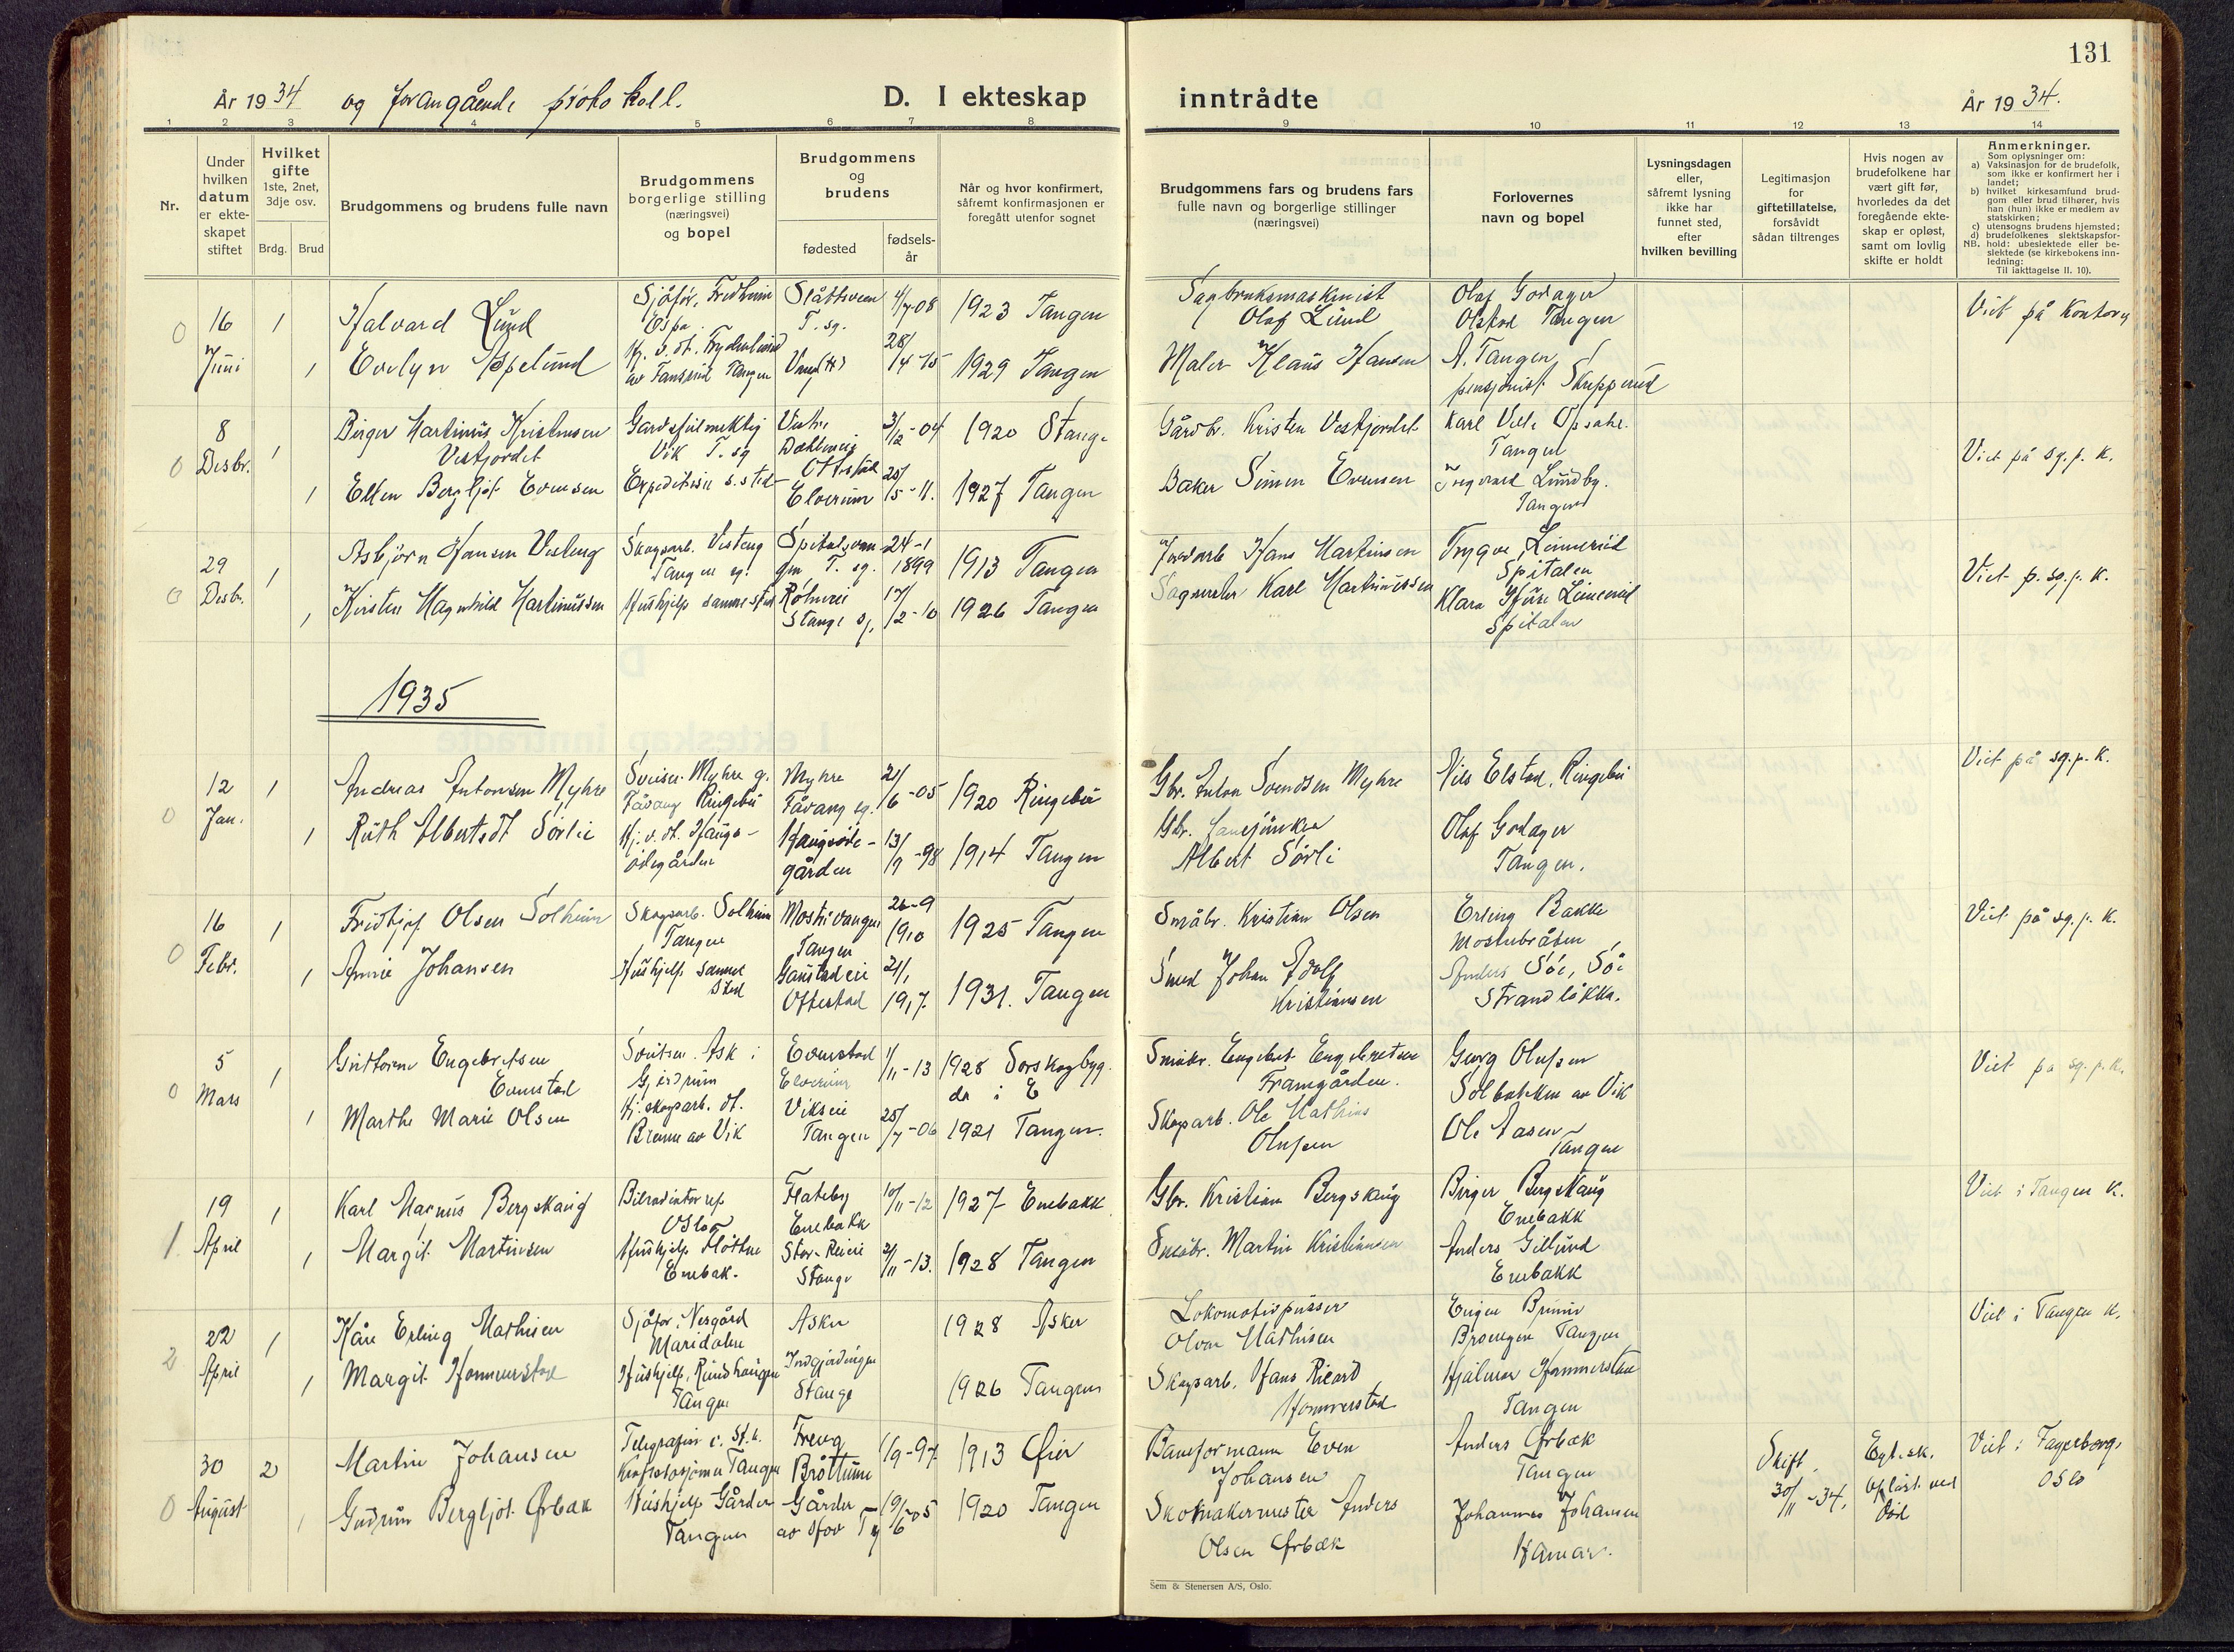 131
År 1934 og forangående protokoll.
D. I ekteskap inntrådte
År 1934.
1 2 3 4 5 6 7 8 9 10 11 12 13 14
Nr.
Under hvilken datum er ekte- skapet stiftet
Hvilket gifte 1ste, 2net, 3dje osv.
Brdg. Brud
Brudgommens og brudens fulle navn
Brudgommens borgerlige stilling (næringsvei) og bopel
Brudgommens og brudens
fødested
fødsels- år
Når og hvor konfirmert, såfremt konfirmasjonen er foregått utenfor sognet
Brudgommens fars og brudens fars fulle navn og borgerlige stillinger (næringsvei)
Forlovernes navn og bopel
Lysningsdagen eller, såfremt lysning ikke har funnet sted, efter hvilken bevilling
Legitimasjon for giftetillatelse, forsåvidt sådan tiltrenges
Hvis nogen av brudefolkene har vært gift før, hvorledes da det foregående ekte- skap er opløst, samt om lovlig skifte er holdt
Anmerkninger.
Som oplysninger om:
a) Vaksinasjon for de brudefolk, som ikke er konfirmert her i landet;
b) hvilket kirkesamfund brud- gom eller brud tilhører, hvis han (hun) ikke er medlem av statskirken;
c) utensogns brudens hjemsted;
d) brudefolkenes slektskapsfor- hold: ubeslektede eller be- slektede (se kirkebokens inn- ledning:
NB. Til iakttagelse II. 10).
0 16 Juni 1
Halvard Lund
Sjåfør, Fredheim Espa.
Slåttsveen T. sg.
4/7-08
1923 Tangen
Sagbruksmaskinist Olaf Lund
Olaf Godager Olstad Tangen
Viet på kontoret
1
Evelyn Appelund
28/4-15
1929 Tangen
Maler Klaus Hansen
A. Tangen pensjonist Skupperud
0 8 Desbr. 1
Birger Martinius Kristensen Vestjordet
Gardsfullmektig Vik T. sg
Vestre Dahlseie Ottestad
3/12-04
1920 Stange
Gårdbr. Kristen Vestjordet
Karl Opsahl. Tangen
Viet på sg. p. k.
1
Ellen Bergljot Evensen
Expeditrise s. sted
Elverum
25/5-11.
1927 Tangen
Baker Simen Evensen
Ingvard Lundby. Tangen
0 29 Desbr. 1
Asbjörn Hansen Vesteng
Skogsarb. Vesteng Tangen sg.
T. sg.
24-1 1899
1913 Tangen
Jordarb Hans Martinsen
Trygve Linnerud Spitalen
Viet p. sg. p. k.
1
Kirsten Magnhild Martinussen
Hushjelp samme sted
Stange sg.
17/2-10
1926 Tangen
Karl Martinussen
Klara Linnerud Spitalen
1935
0 12 Jan. 1
Andreas Antonsen Myhre
Sveiser Myhre g. Fåvang Ringebu
Myhre Fåvang sg.
21/6-05
1920 Ringebu
Gbr. Anton Svendsen Myhre
Nils Elstad, Ringebu
Viet på sg. p. k.
1
Ruth Albertsdt Sörlie
Hj. v. dt. Hauge- ödegården
Haugsöde- gården
13/9-98
1914 Tangen
Gbr. Albert Sörli
Olaf Godager Tangen.
0 16 Febr. 1
Fridtjof Olsen Solheim
Skogsarb. Solheim Tangen
Mostuvangen Tangen
26-9 1910
1925 Tangen
Småbr. Kristian Olsen
Erling Bakke Mostubråten
Viet på sg. p. k.
1
Annie Johansen
Hushjelp samme sted
Gaustadeie Ottestad
21/1 1917
1931. Tangen
Smed Johan Adolf Kristiansen
Anders Söe, Söe Strandlökka.
0 5 Mars 1
Guttorm Engebretsen Evenstad
Sveitser. Ask i Gjerdrum
Evenstad Elverum
1/11-13
1928 Sörskogbyg- da i E
Småbr. Engebret Engebretsen Framgården.
Georg Olufsen Solbakken av Vik
Viet på sg. p. k.
1
Marthe Marie Olsen
Hj. skogsarb. dt. Brenne av Vik
Vikseie Tangen
25/7-06
1921 Tangen.
Skogsarb. Ole Mathias Olufsen
Ole Aasen Tangen
1 19 April 1
Karl Magnus Bergskaug
Bilradiator rep Oslo
Flateby Enebakk
10/11-12
1927 Enebakk
Gbr. Kristian Bergskaug
Birger Bergskaug Enebakk
Viet i Tangen k.
1
Margit Martinsen
Hushjelp Enebak.
Stor-Reieie Stange
2/11-13.
1928 Tangen
Småbr. Martin Kristiansen
Anders Gillund Enebakk
2 22 April 1
Kåre Erling Mathisen
Sjåfør. Nesgård Maridalen
Asker
1928 Asker
Lokomotivpusser Olvar Mathisen
Eugen Brenne Tangen
Viet i Tangen k.
1
Margit Hommerstad
Hushjelp, Rundhaugen Tangen
Stange
1926 Tangen
Skogsarb. Hans Rikard Hommerstad
Hjalmar Hommerstad Tangen
0 30 August 2
Martin Johansen
Tangen
Freng Bröttum
1/9-97
1913 Öier
Baneformann Even Johansen
Anders Örbæk Tangen
Skift. 30/11-34.
Egt.sk. opløst ved död
Viet i Fagerborg, Oslo
1
Gudrun Bergljot Örbæk
Hushjelp Gården Tangen
Gården
19/6-05
1920 Tangen
Skomakermester Anders Olsen Örbæk
Johannes Johansen Hamar.
Sem & Stenersen A/S, Oslo.